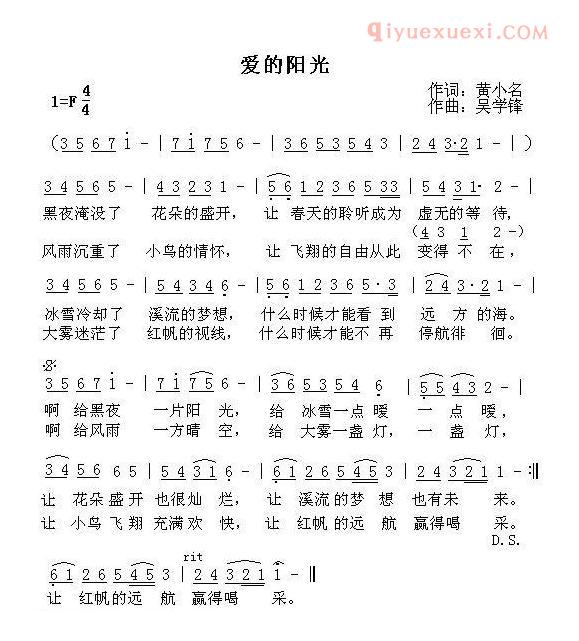 qiyuexuexi.com
爱的阳光
1=F 4/4
作词：黄小名
作曲：吴学锋
（3 5 6 7 i －｜7 i 7 5 6 －｜3 6 5 3 5 4 3｜2 4 3·2 1 －｜）
3 4 5 6 5 －｜4 3 2 3 1 －｜5 6 1 2 3 6 5 3 3｜5 4 3 1· 2 －｜
黑夜淹没了 花朵的盛开， 让 春天的聆听成为 虚无的等 待，
（4 3 1 2 －）
风雨沉重了 小鸟的情怀， 让 飞翔的自由从此 变得不 在，
3 4 5 6 5 －｜5 4 3 4 6 －｜5 6 1 2 3 6 5· 3｜2 4 3 2 1 －｜
冰雪冷却了 溪流的梦想， 什么时候才能看 到 远 方 的海。
大雾迷茫了 红帆的视线， 什么时候才能不 再 停航徘 徊。
3 5 6 7 i －｜7 i 7 5 －｜3 6 5 3 5 4 6｜5 5 4 3 2 －｜
啊 给黑夜 一片阳 光， 给 冰雪一点 暖 一 点 暖，
啊 给风雨 一方晴 空， 给 大雾一盏 灯， 一 盏 灯，
3 4 5 6 5｜5 4 3 1 6 －｜6 1 2 6 5 4 5｜2 4 3 2 1 1 －:‖
让 花朵盛开也很灿 烂， 让 溪流的梦 想 也有未 来。
让 小鸟飞翔充满欢 快， 让 红帆的远 航 赢得喝 采。
D.S.
rit
6 1 2 6 5 4 5｜2 4 3 2 1 i －‖
让 红帆的远 航 赢得喝 采。